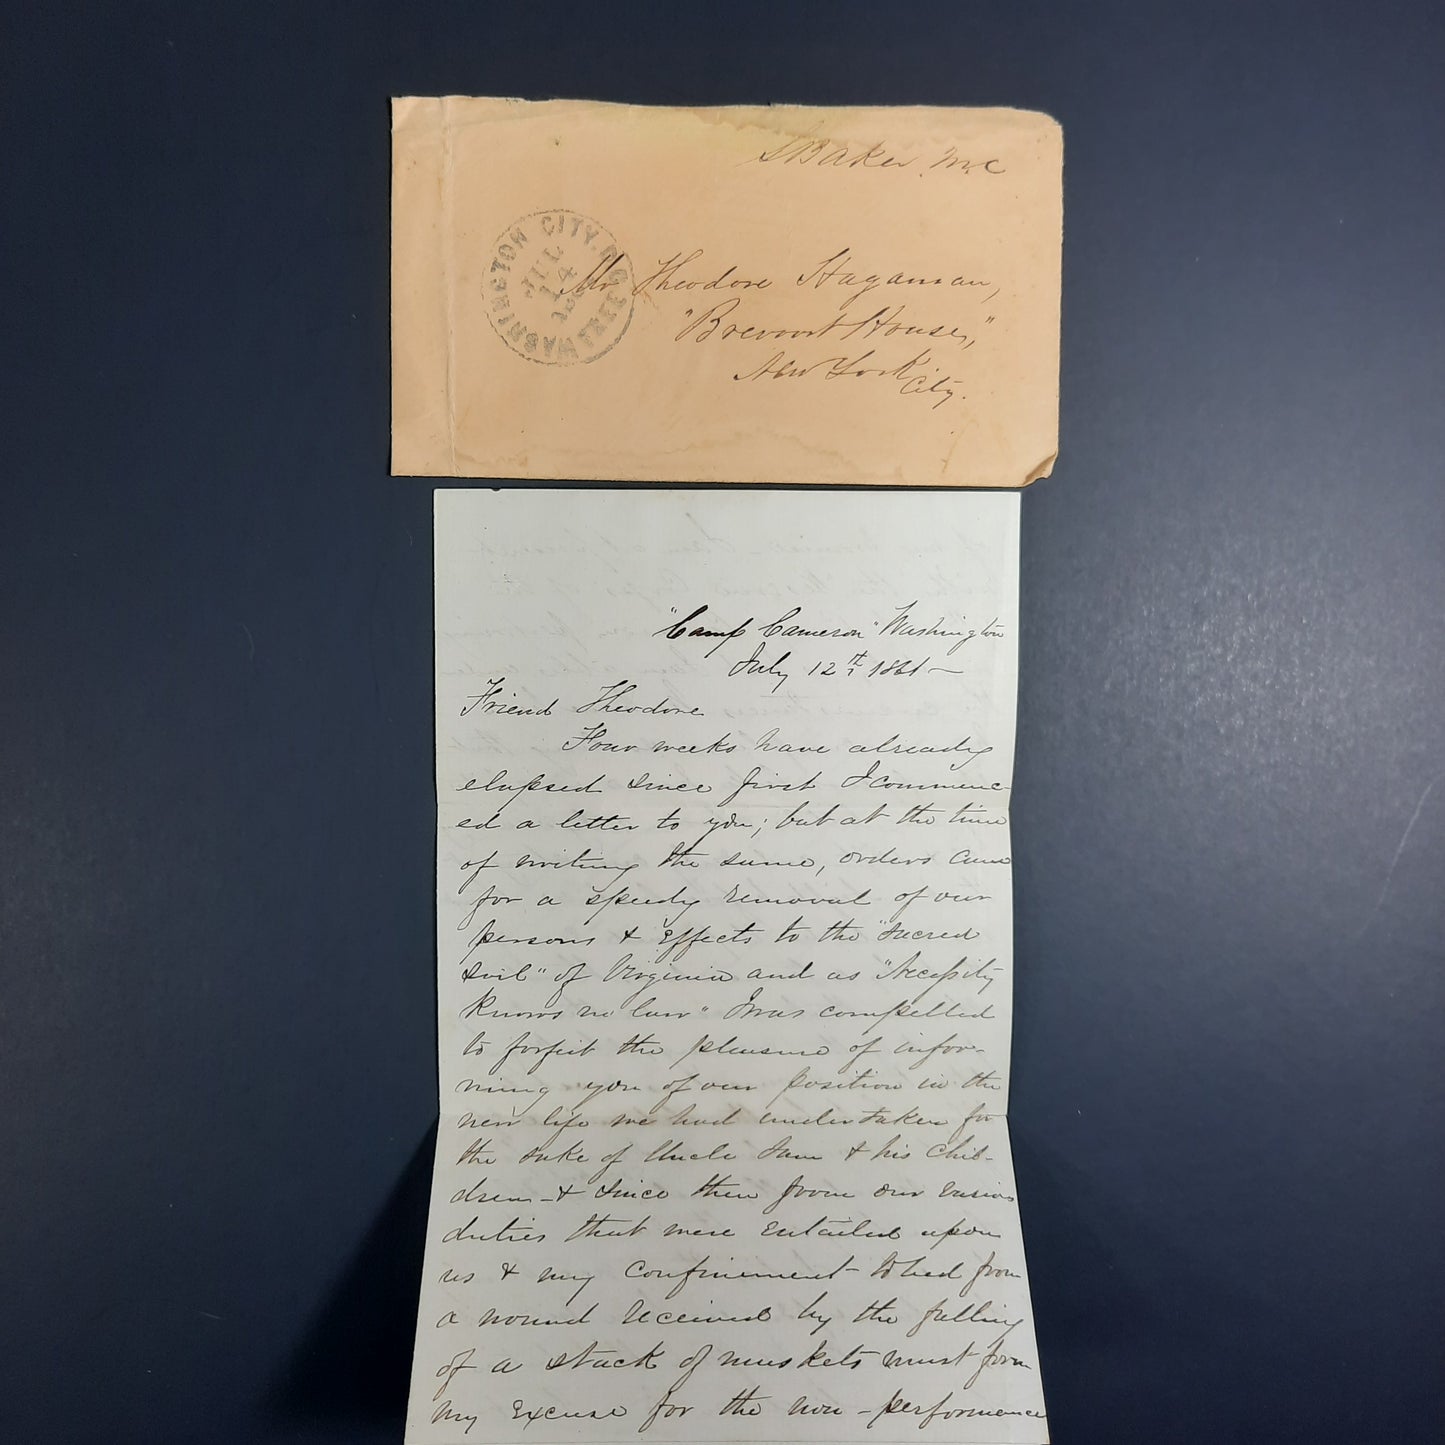 S Baker M.C
WASHINGTON CITY. D.C.
JUL
14
FREE
Mr Theodore Hagaman,
"Brevoort House,"
New York
City.
"Camp Cameron" Washington
July 12th, 1861 —
Friend Theodore
Four weeks have already
elapsed since first I commenc-
ed a letter to you; but at the time
of writing the same, orders came
for a speedy removal of our
persons & effects to the "Sacred
Soil" of Virginia and as "Necessity
Knows no law" I was compelled
to forfeit the pleasure of infor-
ming you of our position in the
new life we had undertaken for
the sake of Uncle Sam & his Chil-
dren - & since then from our various
duties that were entailed upon
us & my confinement to bed from
a wound received by the falling
of a stack of muskets must form
my Excuse for the non-performance